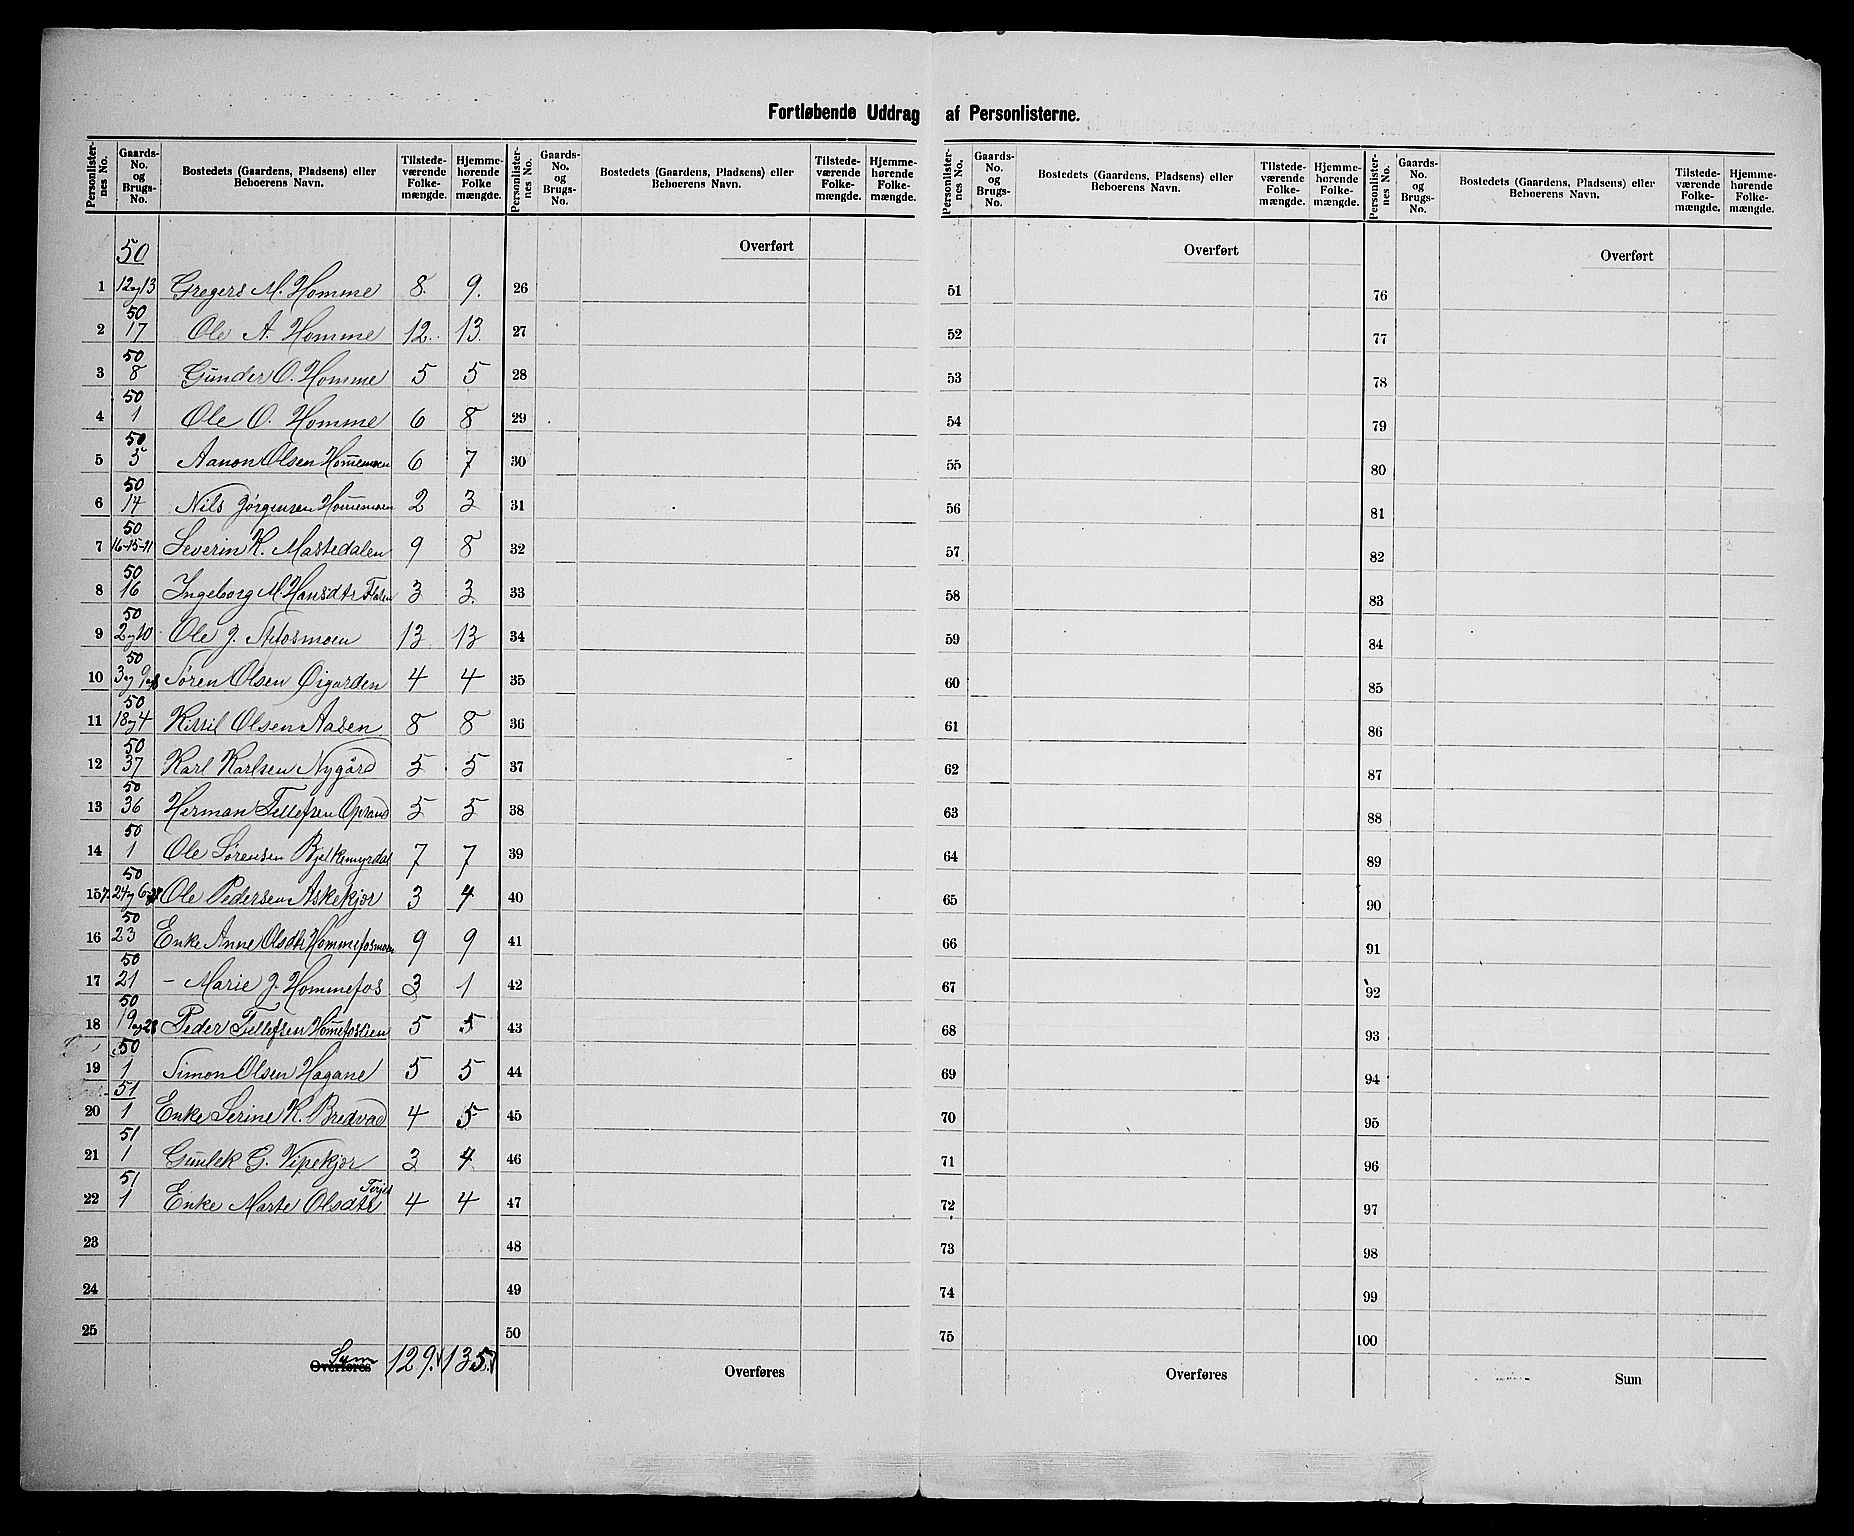 Fortløbende Uddrag af Personlisterne.
Personlister-nes No. Gaards-No. og Brugs-No. Bostedets (Gaardens, Pladsens) eller Beboerens Navn. Tilstede-værende Folke-mængde. Hjemme-hørende Folke mængde.
Personlister-nes No. Gaards-No. og Brugs-No. Bostedets (Gaardens, Pladsens) eller Beboerens Navn. Tilstede-værende Folke-mængde. Hjemme-hørende Folke-mængde.
Personlister-nes No. Gaards-No. og Brugs-No. Bostedets (Gaardens, Pladsens) eller Beboerens Navn. Tilstede-værende Folke-mængde. Hjemme-hørende Folke-mængde.
Personlister-nes No. Gaards-No. og Brugs-No. Bostedets (Gaardens, Pladsens) eller Beboerens Navn. Tilstede-værende Folke-mængde. Hjemme-hørende Folke-mængde.
50
1 12og13 Gregers M. Homme 8. 9.
50
2 17 Ole A. Homme 12. 13.
50
3 8 Gunder O. Homme 5 5
50
4 1 Ole O. Homme 6 8
50
5 5 Aanon Olsen Hommemoen 6 7
50
6 14 Nils Jørgensen Hommemoen 2 3
50
7 16-15-11 Severin K. Mastedalen 9 8
50
8 16 Ingeborg M. Hansdtr Flaten 3 3.
50
9 2og10 Ole J. 13 13
50
10 3og9og8 Søren Olsen Øigarden 4 4
50
11 18og4 Kissil Olsen Aasen 8 8
50
12 37 Karl Karlsen Nygård 5 5
50
13 36 Herman Tellefsen Opsand 5 5
50
14 1 Ole Sørensen Bjelkemyrdal 7 7
50
15 7-24og6-28 Ole Pedersen Askekjør 3 4
50
16 23 Enke Anne Olsdtr Hommefosmoen 9 9
50
17 21 - Marie J. Hommefos 3 1
50
18 19og28 Peder Tellefsen 5 5
50
19 1 Simon Olsen Hagane 5 5
51
20 1 Enke Serine K. Bredvad 4 5
51
21 1 Gunlek G. Vipekjør 3 4
51
22 1 Enke Marte Olsdtr Terjes 4 4
23
24
25
Overføres Sum 129. 135.
Overført
26
27
28
29
30
31
32
33
34
35
36
37
38
39
40
41
42
43
44
45
46
47
48
49
50
Overføres
Overført
51
52
53
54
55
56
57
58
59
60
61
62
63
64
65
66
67
68
69
70
71
72
73
74
75
Overføres
Overført
76
77
78
79
80
81
82
83
84
85
86
87
88
89
90
91
92
93
94
95
96
97
98
99
100
Sum